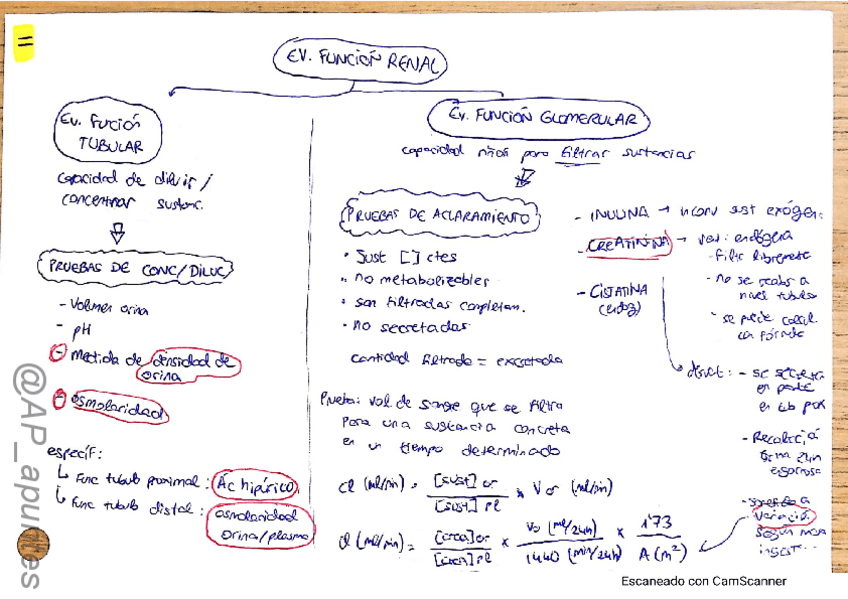 11
EV. FUNCIÓN RENAL
Ev. Función
TUBULAR
capacidad de diluir /
concentrar sustanc.
PRUEBAS DE CONC/DILUC
- Volumen orina
- pH
- Medida de densidad de
orina
- osmolaridad
específ:
↳ Func tubulo proximal: Ác hipúrico
↳ Func tubulo distal: osmolaridad
orina/plasma
Ev. FUNCIÓN GLOMERULAR
capacidad para filtrar sustancias
PRUEBAS DE ACLARAMIENTO
· Sust [] ctes
· no metabolizables
· son filtradas completam.
· no secretadas
cantidad filtrada = excretada
Prueba: vol de sangre que se filtra
para una sustancia concreta
en un tiempo determinado
Cl (ml/min) = [sust] or / [sust] pl × V or (ml/min)
Cl (ml/min) = [crea] or / [crea] pl × Vo (ml/24h) / 1440 (min/24h) × 1'73 / A (m²)
- INULINA → inconv sust exógena
- CREATININA → endógena
- Filtr libremente
- No se reabs a
nivel tubular
- se puede
con fórmula
- CISTATINA
(endog)
- se secreta
en parte
en
- Recolecció
orina 24h
engorrosa
- a
variació
según masa
@AP_apuntes
Escaneado con CamScanner